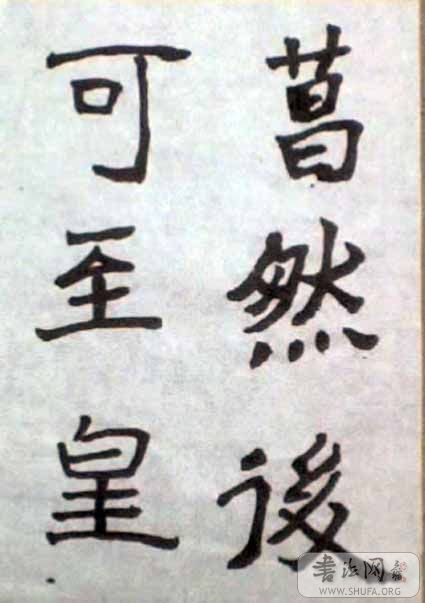 菖然後
可至皇
書法网
WWW.SHUFA.ORG